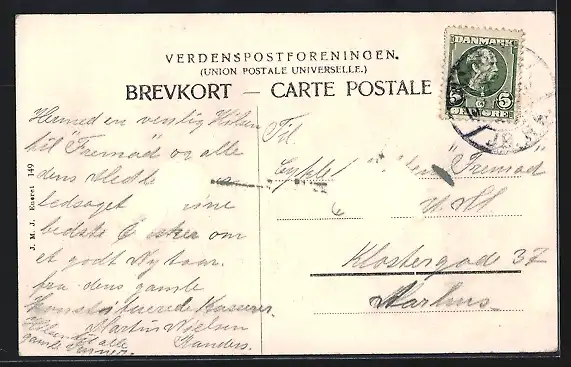 VERDENSPOSTFORENINGEN.
(UNION POSTALE UNIVERSELLE.)
BREVKORT — CARTE POSTALE
DANMARK
5 5
ØRE
J. M. J. Eneret 149
Hermed en venlig Hilsen
til "Fremad" og alle
dens
ledsaget
bedste om
et godt Nytaar
fra dens gamle
Konstituerede Kasserer
Martin Nielsen
Randers.
Hilsen til alle
gamle Venner.
Til
"Fremad"
Klostergade 37
Aarhus